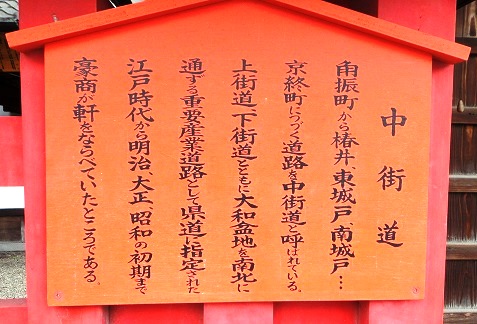 中街道
角振町から椿井、東城戸、南城戸…
京終町につづく道路を中街道と呼ばれている。
上街道、下街道とともに大和盆地を南北に
通ずる重要産業道路として県道に指定された
江戸時代から明治、大正、昭和の初期まで
豪商が軒をならべていたところである。